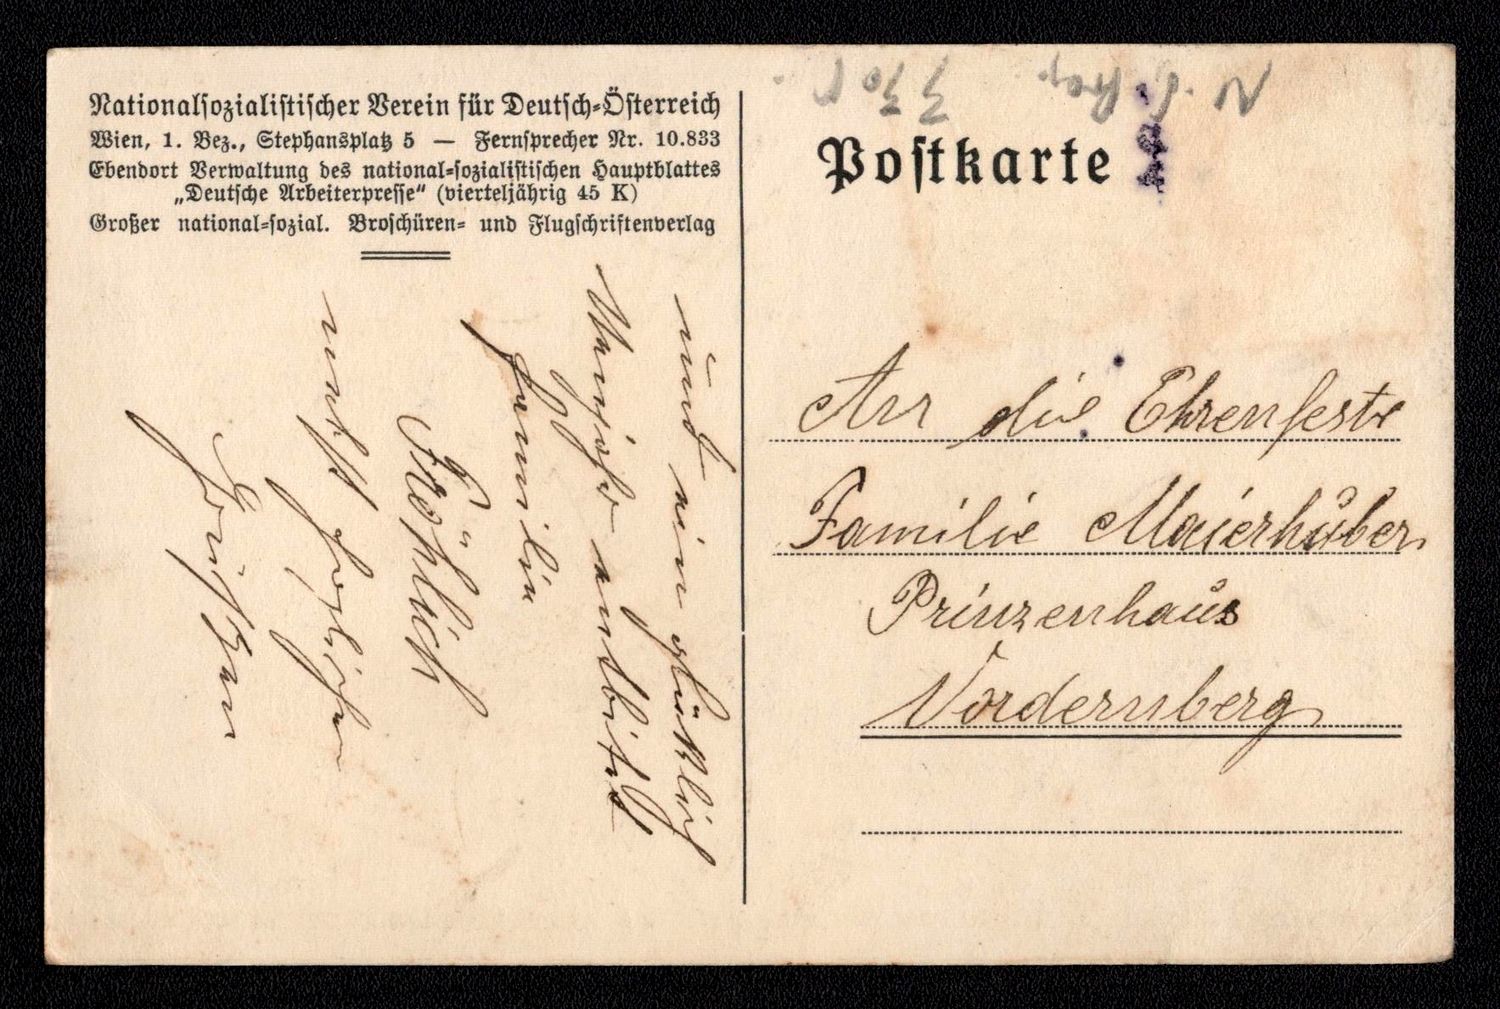 Nationalsozialistischer Verein für Deutsch-Österreich
Wien, 1. Bez., Stephansplatz 5 — Fernsprecher Nr. 10.833
Ebendort Verwaltung des national-sozialistischen Hauptblattes
„Deutsche Arbeiterpresse“ (vierteljährig 45 K)
Großer national-sozial. Broschüren- und Flugschriftenverlag
und ein glücklich
Neujahr entbietet
Familie
Fröhlich
nebst herzlichen
Grüßen
Postkarte
An die Ehrenfeste
Familie Maierhuber
Prinzenhaus
Vordernberg